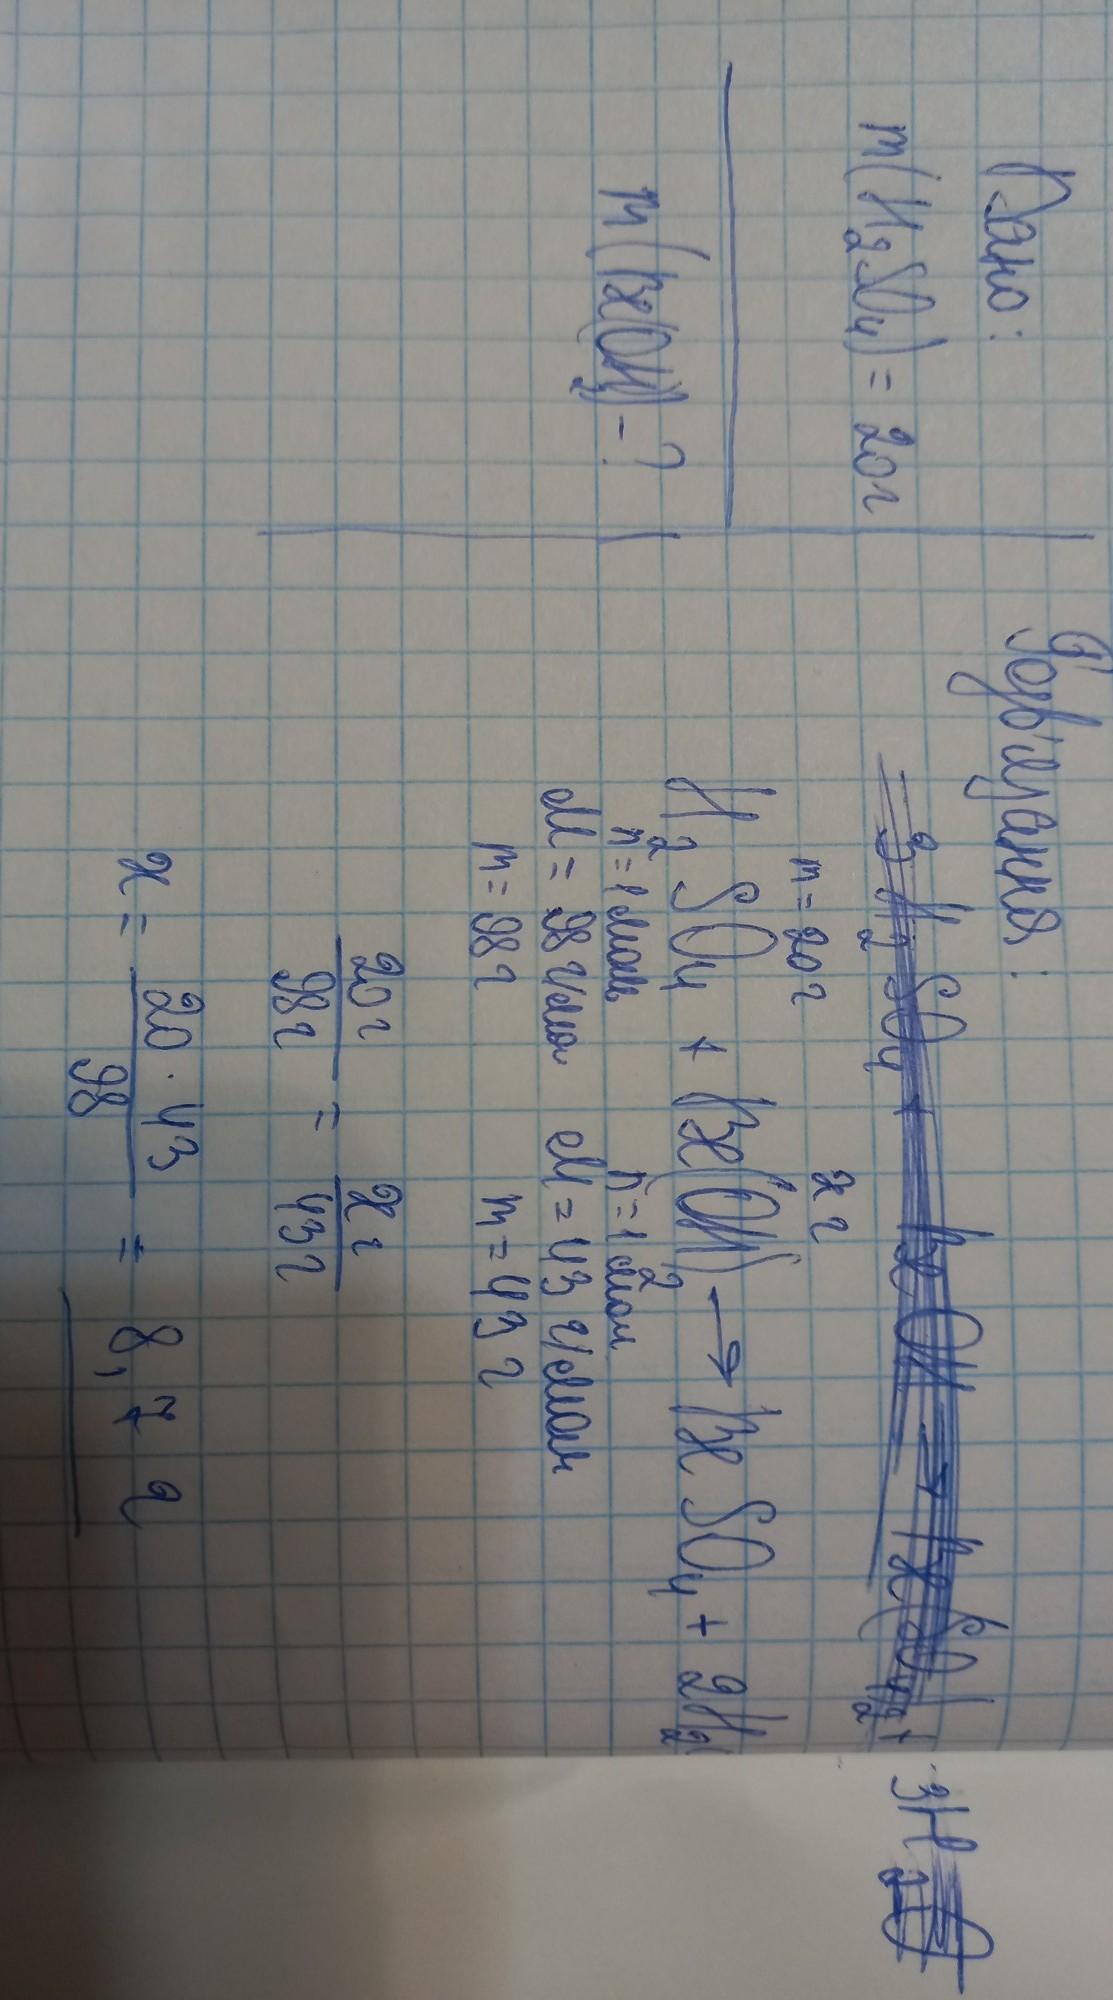 Дано:
m(H₂SO₄) = 20г
m(Be(OH)₂) - ?
Розв'язання:
m = 20 г    x г
H₂SO₄ + Be(OH)₂ → BeSO₄ + 2H₂
n = 1 моль    n = 1 моль
M = 98 г/мол    M = 43 г/моль
m = 98 г    m = 43 г
20г/98г = xг/43г
x = 20 · 43/98 = 8,7 г